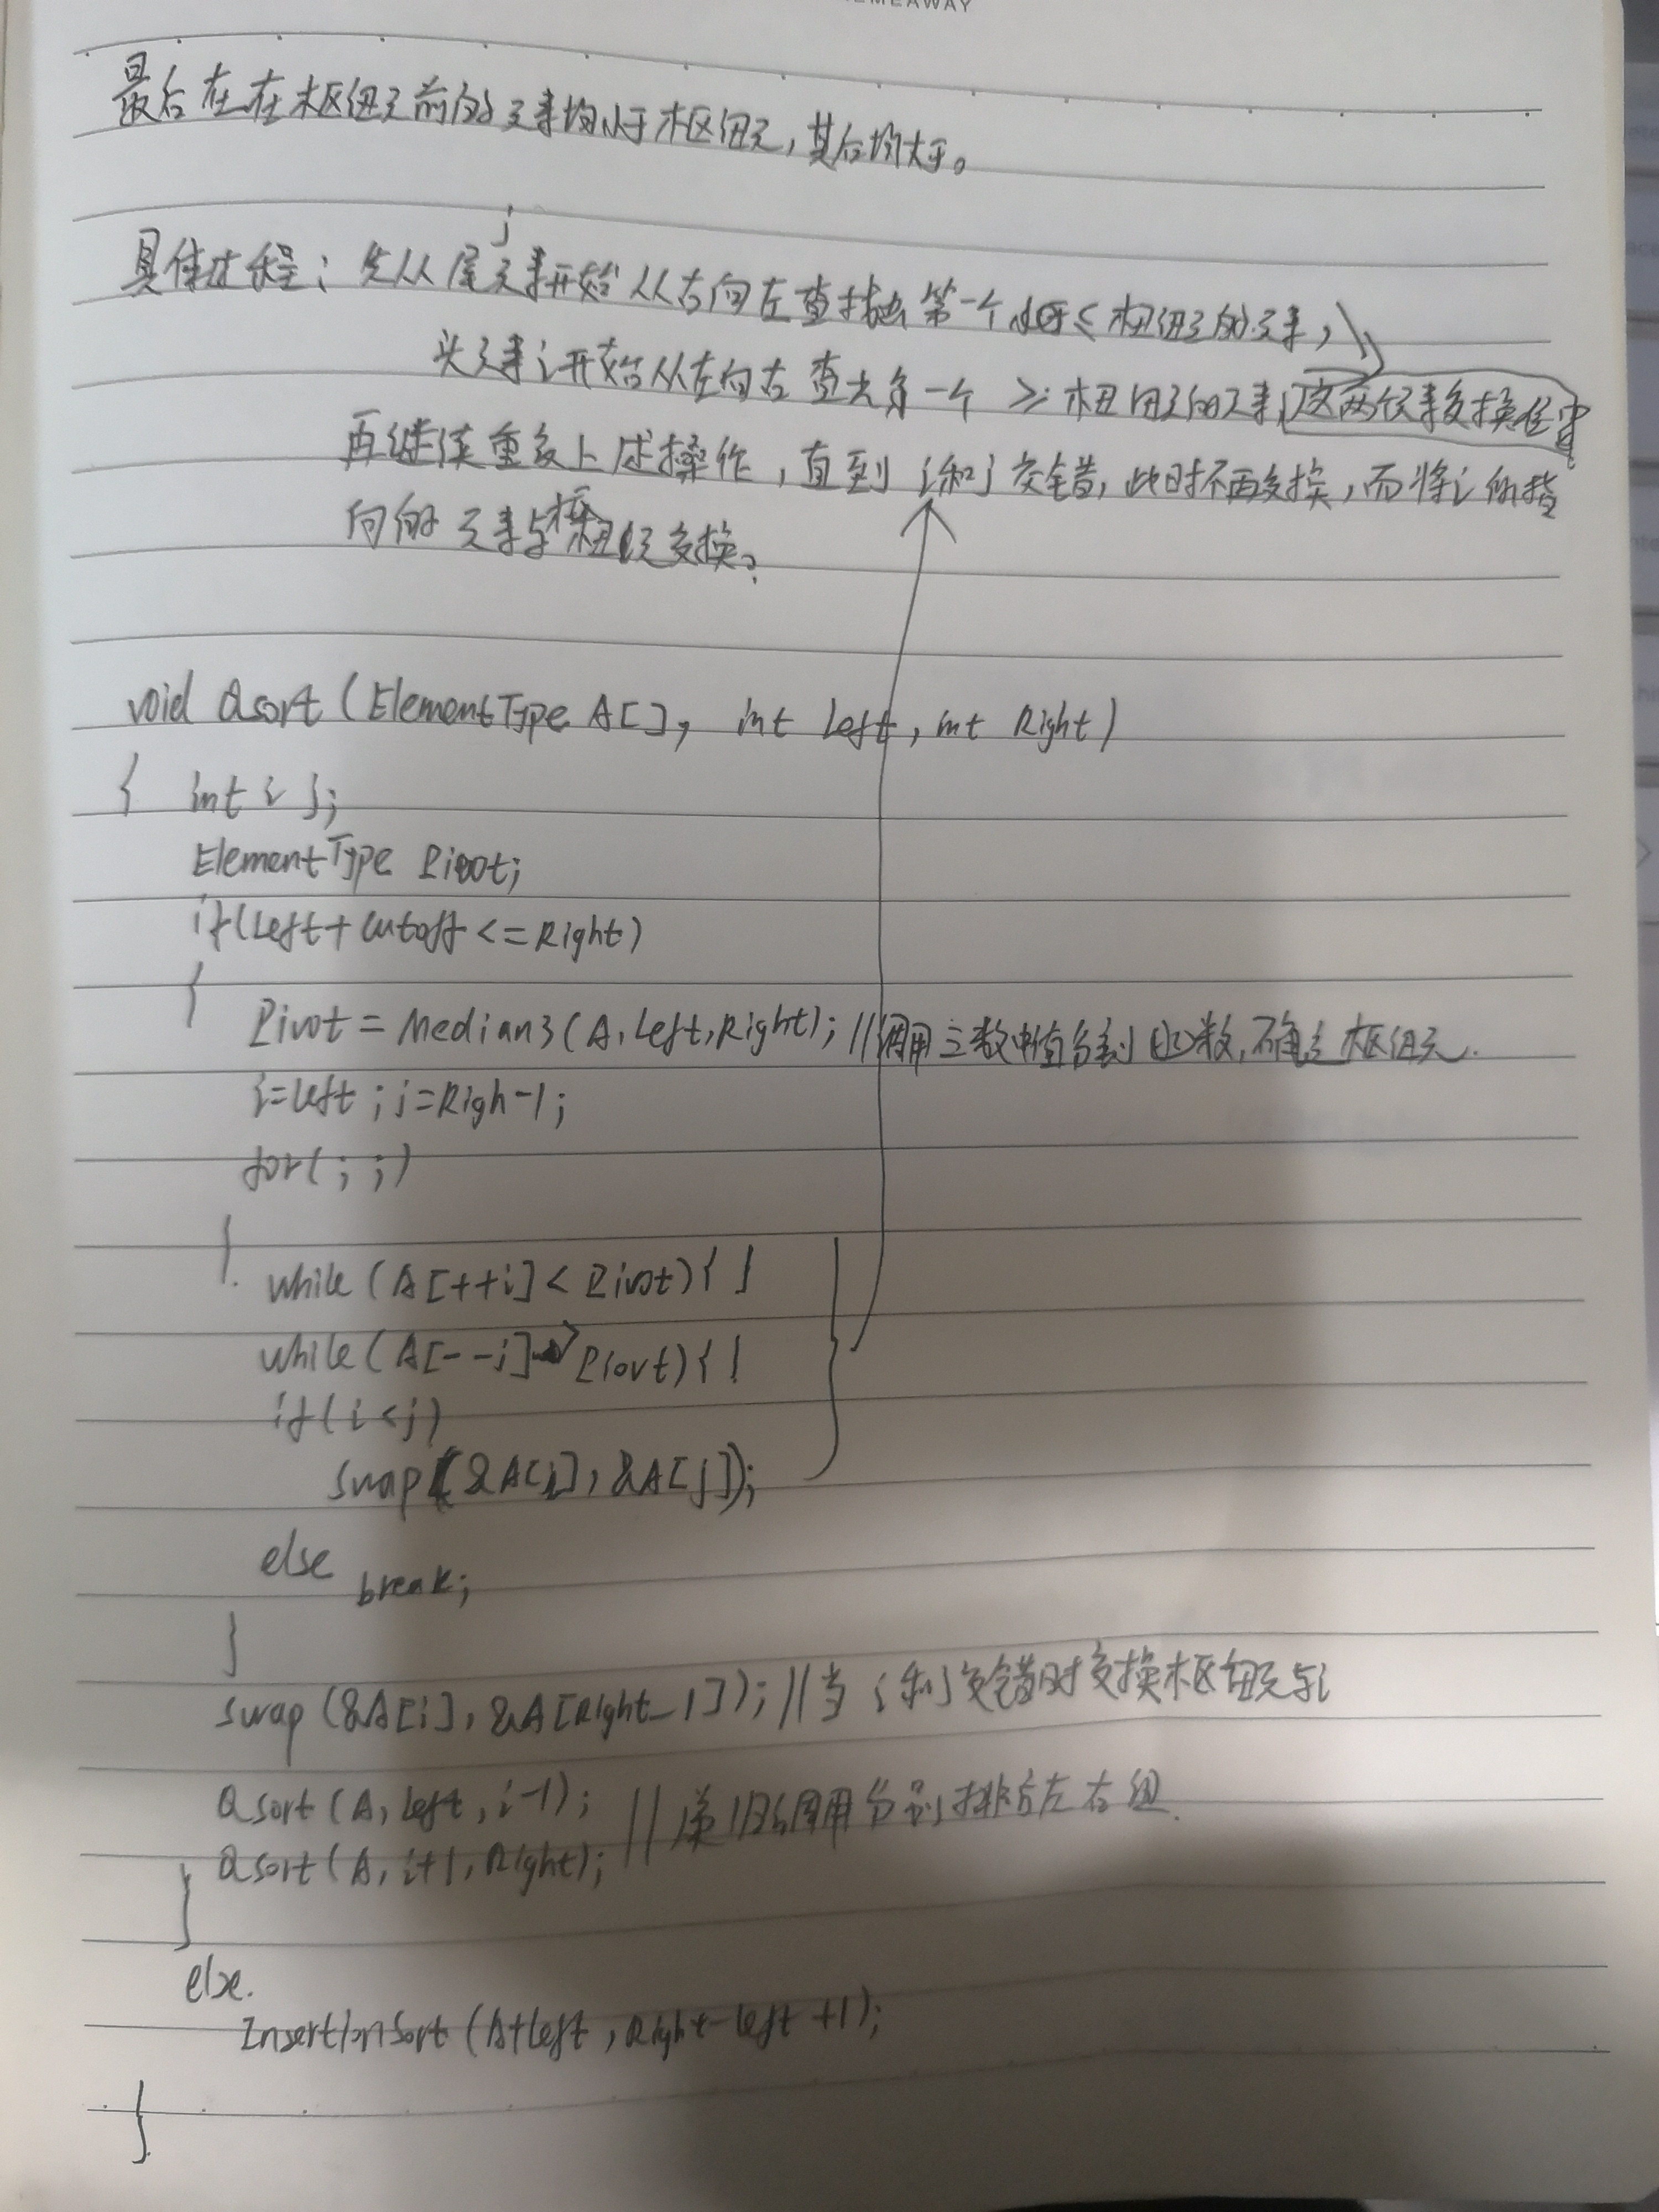 最后在在枢纽元前的元素均小于枢纽元,其后均大于。
j
具体过程:先从尾元素开始从右向左查找出第一个≤枢纽元的元素,
头元素i开始从左向右查去第一个 ≥枢纽元的元素,这两个元素交换位置
再继续重复上述操作,直到i和j交错,此时不再交换,而将i所指
向的元素与枢纽元交换。
void Qsort (ElementType A[], int Left, int Right)
{ int i j;
ElementType Pivot;
if(Left+Cutoff <= Right)
{
Pivot = Median3(A, Left, Right); //调用三数中值分割函数,确定枢纽元.
i=Left ; j=Righ-1;
for( ; ; )
{
while (A[++i] < Pivot) { }
while (A[--j] > Piovt) { }
if(i<j)
swap(&A[i], &A[j]);
else
break;
}
swap (&A[i], &A[Right-1]); //当i和j交错时交换枢纽元与i
Qsort (A, Left, i-1); //递归调用分别排序左右组.
Qsort (A, i+1, Right);
}
else.
InsertionSort (A+Left, Right-Left+1);
}